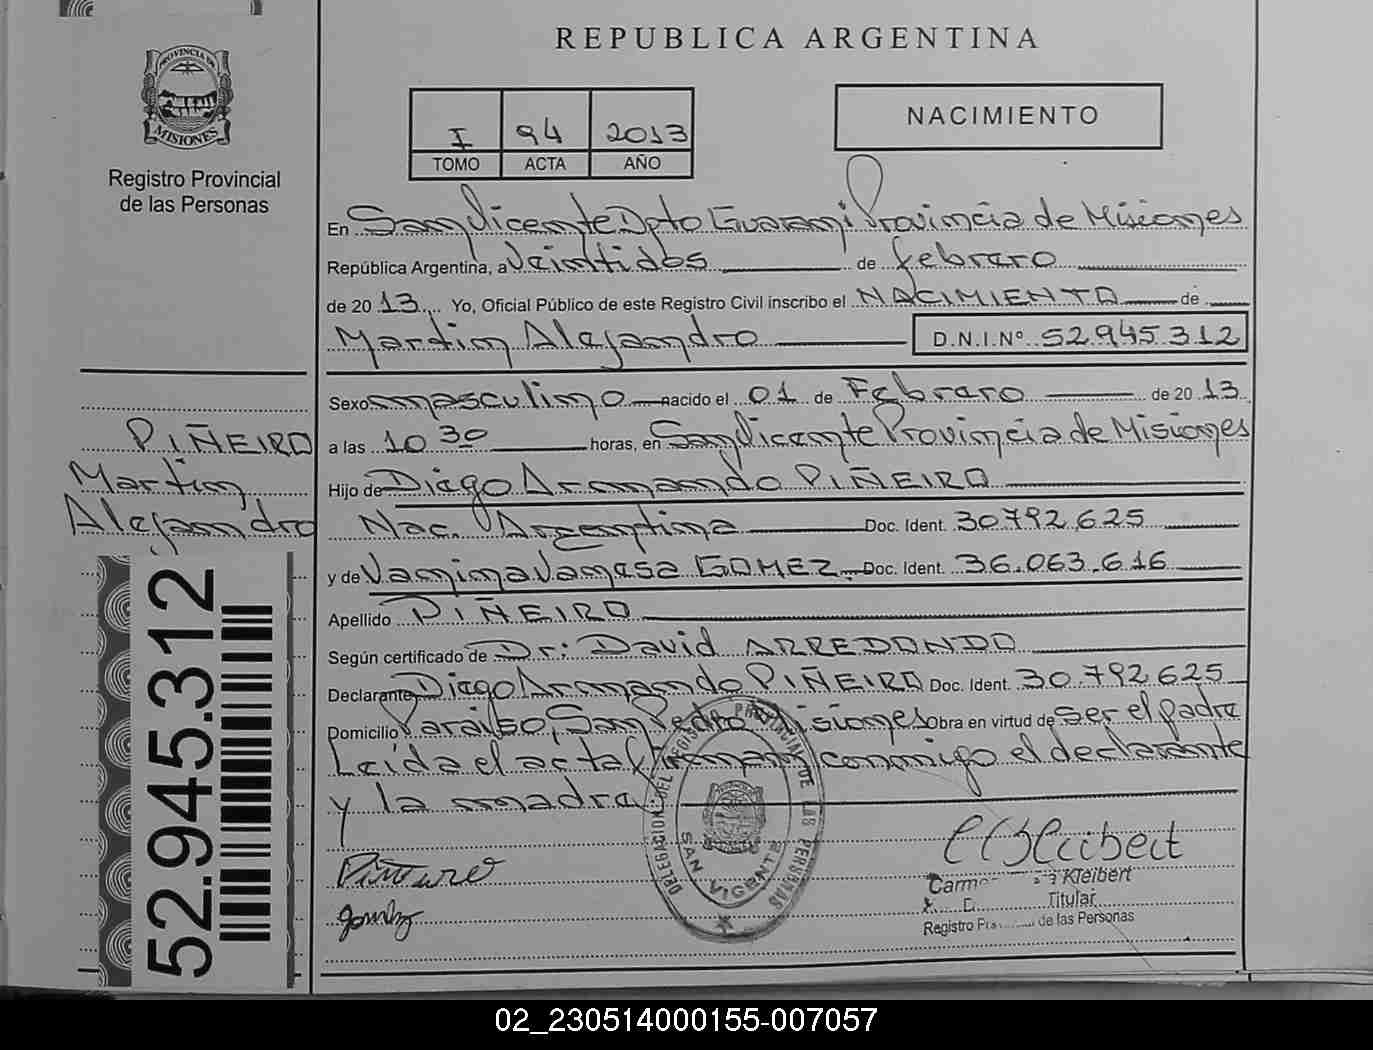 REPUBLICA ARGENTINA
PROVINCIA DE
MISIONES
Registro Provincial
de las Personas
I 94 2013
TOMO ACTA AÑO
NACIMIENTO
En San Vicente Dpto Guarani Provincia de Misiones
República Argentina, a Veintidos de febrero
de 2013 Yo, Oficial Público de este Registro Civil inscribo el NACIMIENTO de
Martin Alejandro D.N.I.Nº 52.945.312
Sexo masculino nacido el 01 de Febrero de 2013
a las 10 30 horas, en San Vicente Provincia de Misiones
Hijo de Diego Armando PIÑEIRO
Nac. Argentina Doc. Ident. 30.792.625
y de Vanina Vanesa GOMEZ. Doc. Ident. 36.063.616
Apellido PIÑEIRO
Según certificado de Dr: David ARREDONDO
Declarante Diego Armando PIÑEIRO Doc. Ident. 30.792.625
Domicilio Paraiso, San Pedro Misiones Obra en virtud de ser el padre
Leida el acta firman conmigo el declarante
y la madre
PIÑEIRO
Martin
Alejandro
52.945.312
DELEGACION DEL REGISTRO PROVINCIAL DE LAS PERSONAS
SAN VICENTE
Kleibert
Titular
Registro de las Personas
02_230514000155-007057